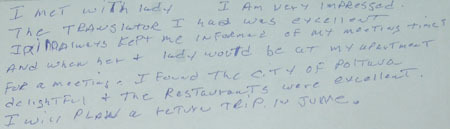 I met with lady I Am very impressed.
The Translator I had was excellent
Iri always kept me informed of my meeting times
And when her & lady would be at my apartment
for a meeting. I found the city of Poltava
delightful & the Restaurants were excellent.
I will plan a return trip in June.